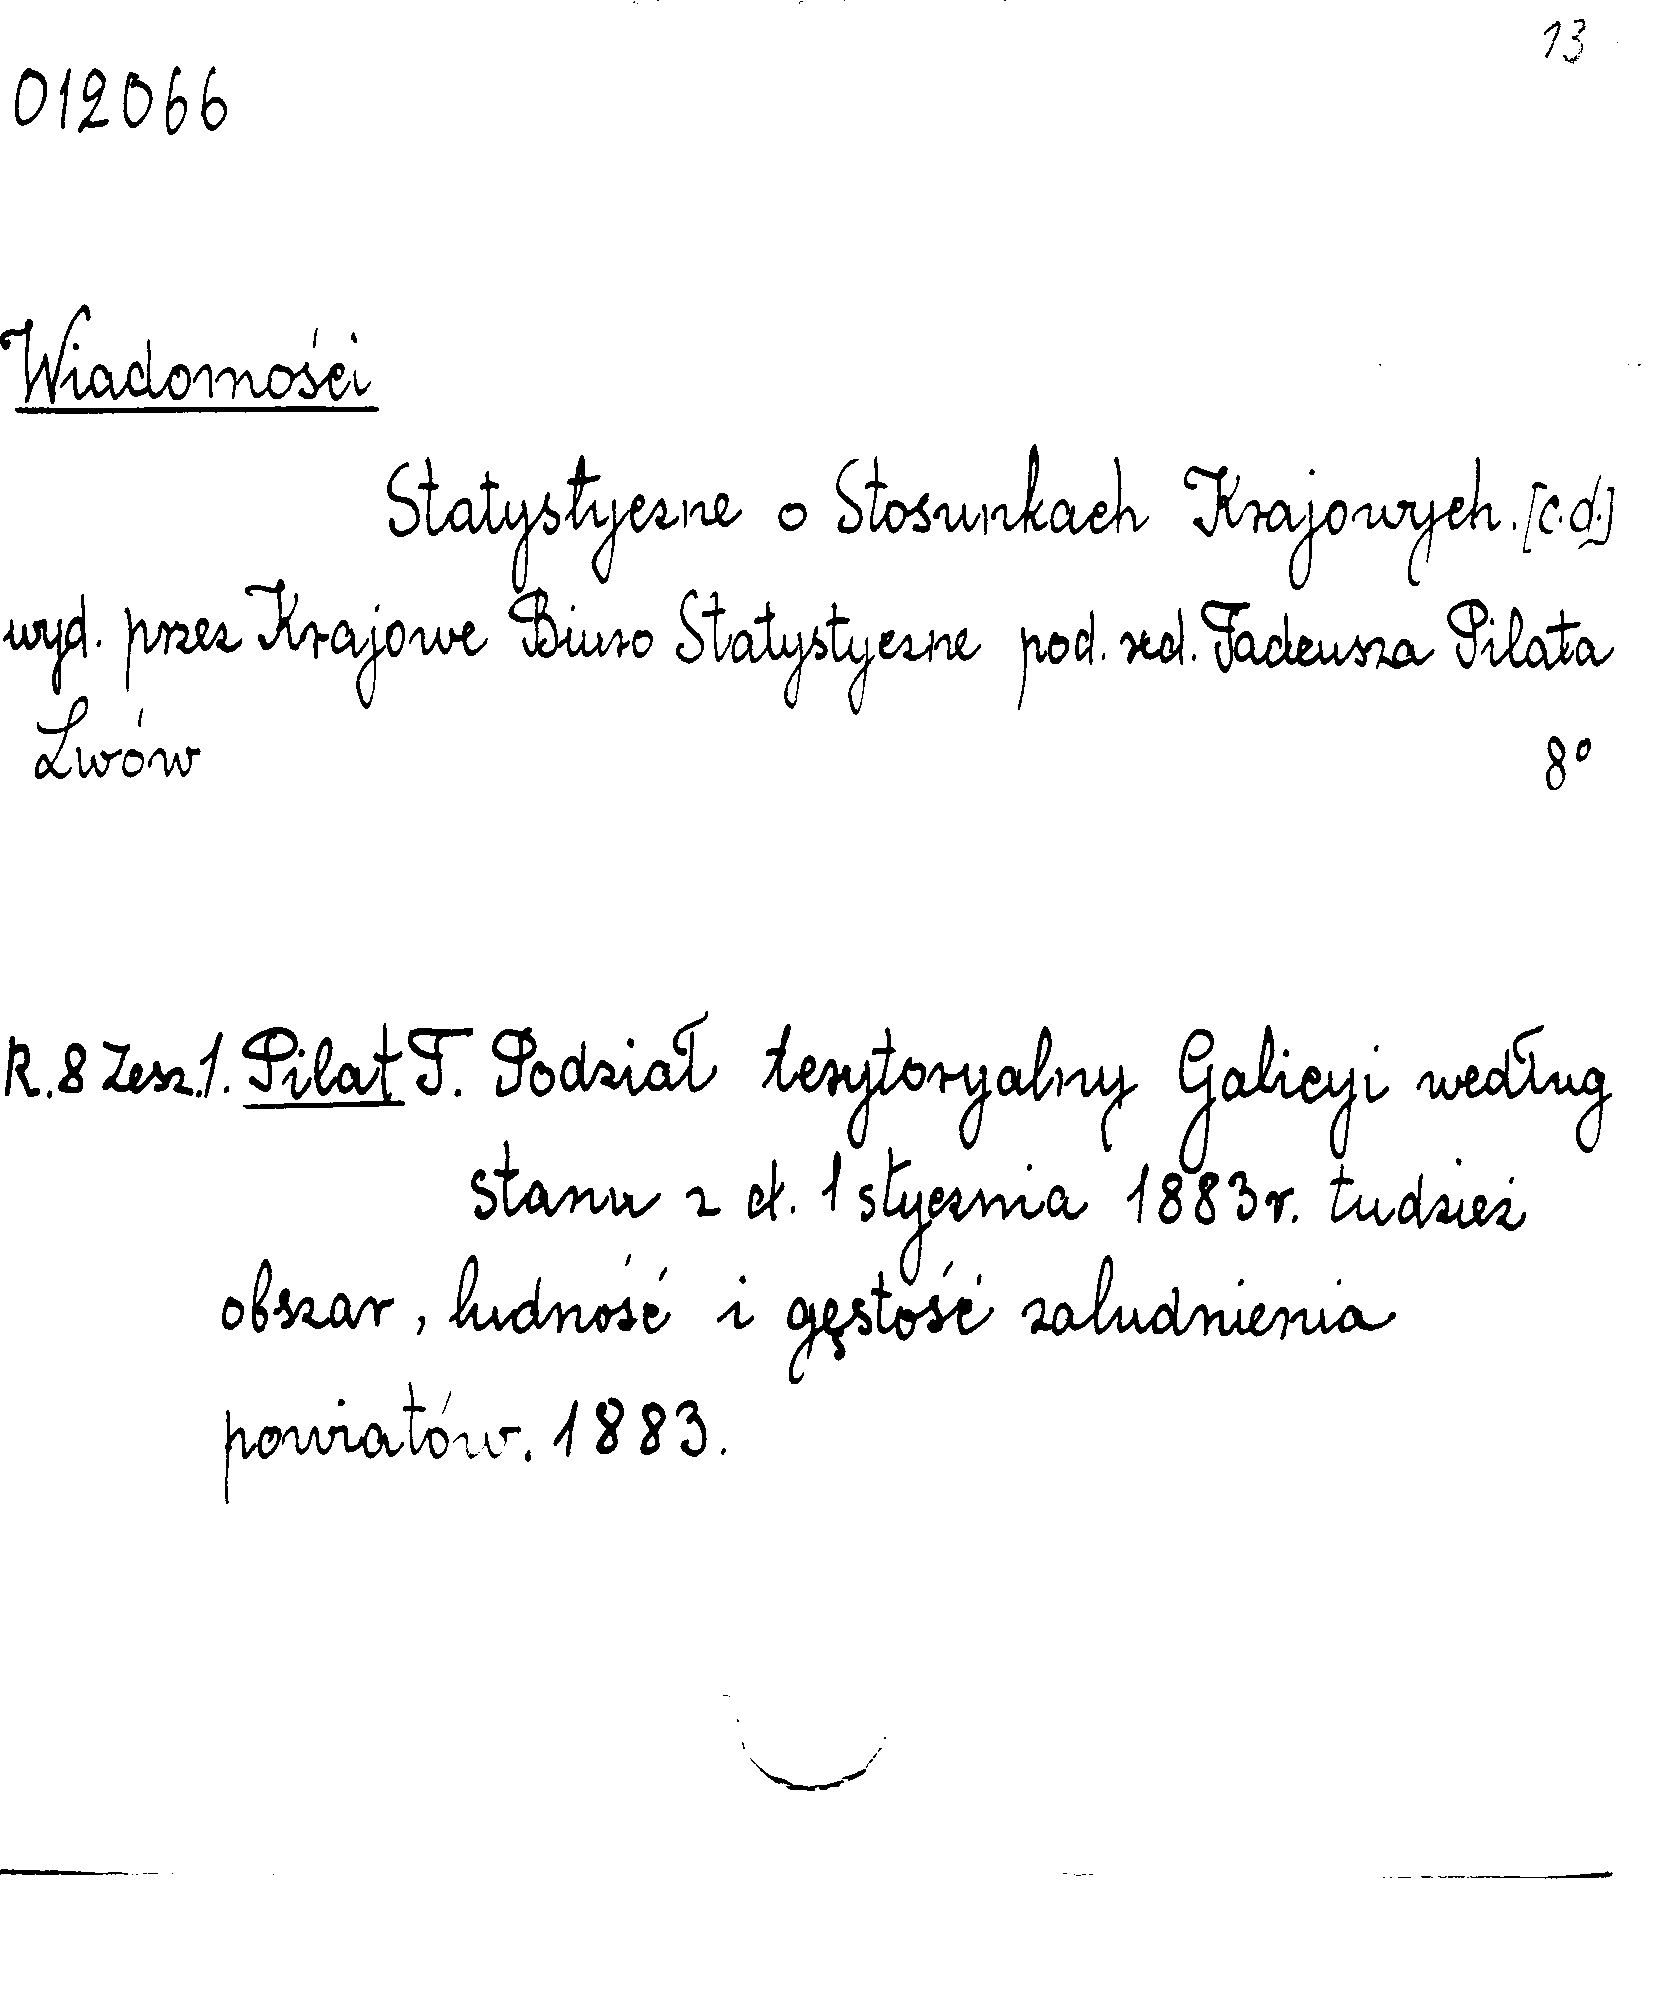 13
012066
Wiadomości
Statystyczne o Stosunkach Krajowych. [c.d.]
wyd. przez Krajowe Biuro Statystyczne pod. red. Tadeusza Pilata
Lwów 8°
R. 8 Zesz. 1. Pilat T. Podział terytoryalny Galicyi według
stanu z d. 1 stycznia 1883 r. tudzież
obszar, ludność i gęstość zaludnienia
powiatów. 1883.